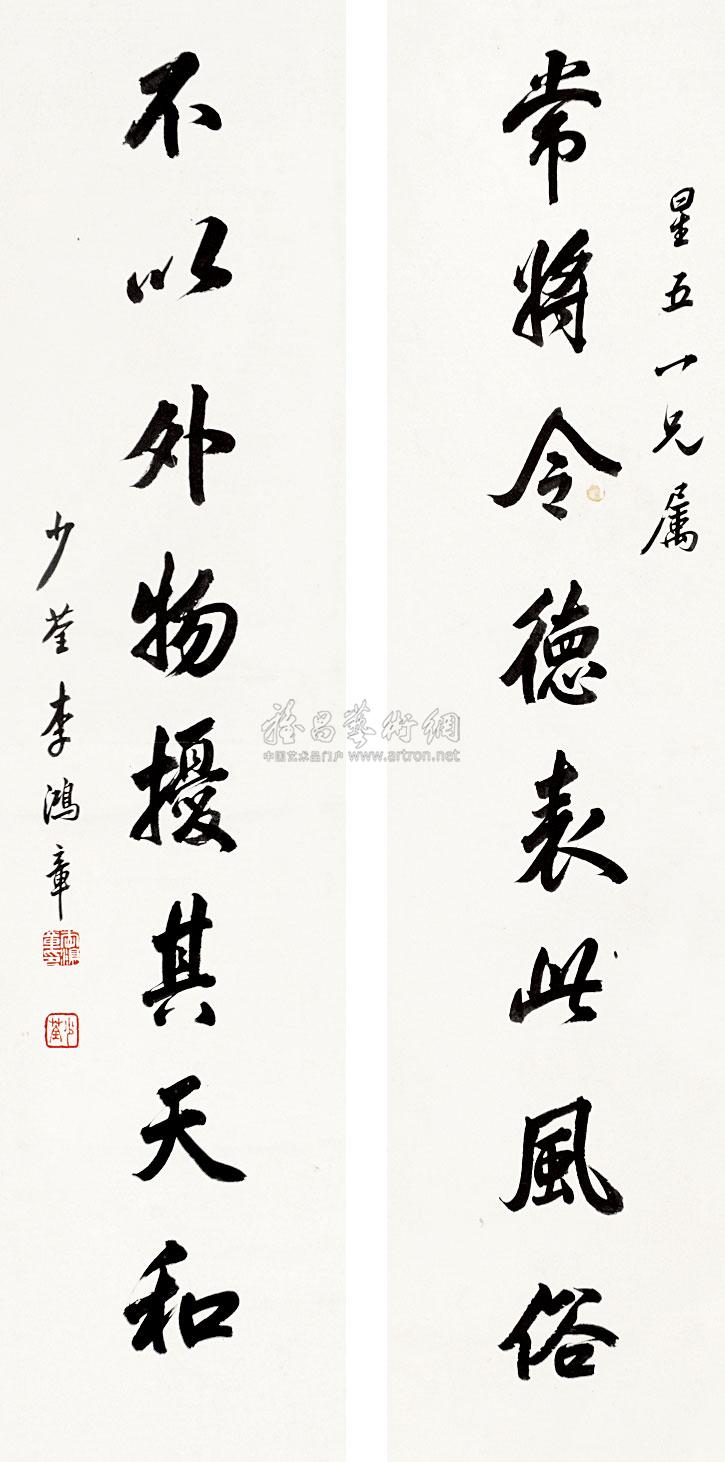 星五一兄属
常将令德表此風俗
不以外物擾其天和
少荃李鴻章
少荃
雅昌藝術網
中国艺术品门户 www.artron.net